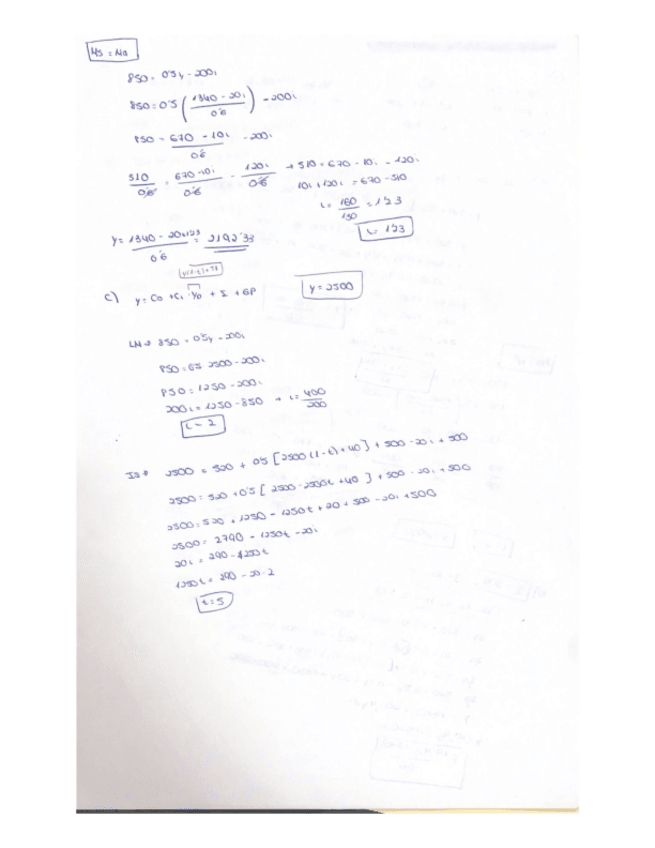 Ms = Md
850 = 0'5y - 200i
850 = 0'5 ( 1340 - 20i / 0'6 ) - 200i
850 = 670 - 10i / 0'6 - 200i
510 / 0'6 = 670 - 10i / 0'6 - 120i / 0'6 → 510 = 670 - 10i - 120i
10i + 120i = 670 - 510
i = 160 / 130 = 1'23
i = 1'23
y = 1340 - 20·1'23 / 0'6 = 2192'33
y(1-t)+TR
C) y = C0 + C1 · YD + I + GP y = 2500
LM → 850 = 0'5y - 200i
850 = 0'5 · 2500 - 200i
850 = 1250 - 200i
200i = 1250 - 850 → i = 400 / 200
i = 2
IS → 2500 = 520 + 0'5 [2500 (1-t) + 40] + 500 - 20i + 500
2500 = 520 + 0'5 [ 2500 - 2500t + 40 ] + 500 - 20i + 500
2500 = 520 + 1250 - 1250t + 20 + 500 - 20i + 500
2500 = 2790 - 1250t - 20i
20i = 290 - 1250t
1250t = 290 - 20·2
t = 5